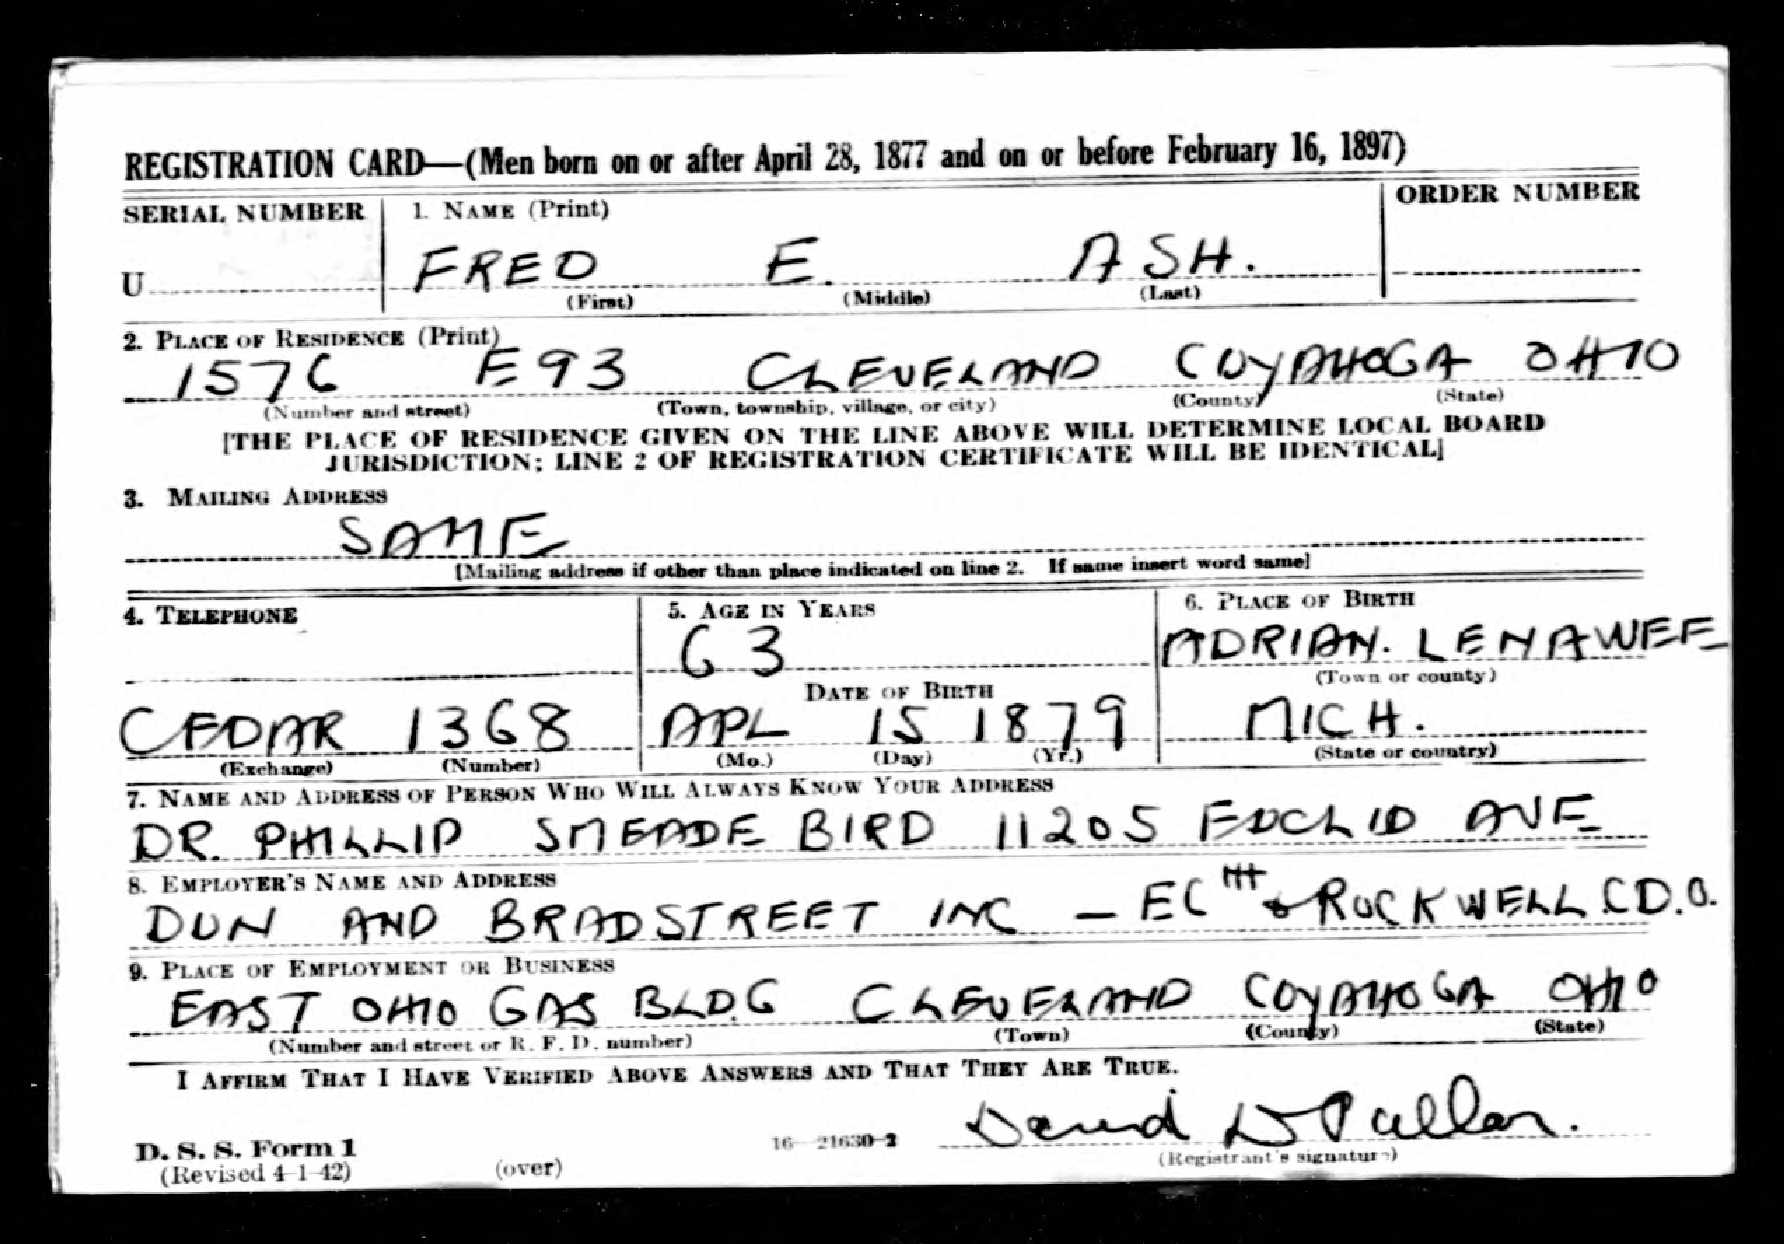 REGISTRATION CARD—(Men born on or after April 28, 1877 and on or before February 16, 1897)
SERIAL NUMBER 1. NAME (Print) ORDER NUMBER
U FRED E. ASH.
(First) (Middle) (Last)
2. PLACE OF RESIDENCE (Print)
1576 E 93 CLEVELAND CUYAHOGA OHIO
(Number and street) (Town, township, village, or city) (County) (State)
[THE PLACE OF RESIDENCE GIVEN ON THE LINE ABOVE WILL DETERMINE LOCAL BOARD
JURISDICTION; LINE 2 OF REGISTRATION CERTIFICATE WILL BE IDENTICAL]
3. MAILING ADDRESS
SAME
[Mailing address if other than place indicated on line 2. If same insert word same]
4. TELEPHONE 5. AGE IN YEARS 6. PLACE OF BIRTH
63 ADRIAN. LENAWEE
(Town or county)
DATE OF BIRTH
CEDAR 1368 APL 15 1879 MICH.
(Exchange) (Number) (Mo.) (Day) (Yr.) (State or country)
7. NAME AND ADDRESS OF PERSON WHO WILL ALWAYS KNOW YOUR ADDRESS
DR. PHILLIP SMEADE BIRD 11205 EUCLID AVE
8. EMPLOYER'S NAME AND ADDRESS
DUN AND BRADSTREET INC — E6TH & ROCKWELL C.D.O.
9. PLACE OF EMPLOYMENT OR BUSINESS
EAST OHIO GAS BLDG CLEVELAND CUYAHOGA OHIO
(Number and street or R. F. D. number) (Town) (County) (State)
I AFFIRM THAT I HAVE VERIFIED ABOVE ANSWERS AND THAT THEY ARE TRUE.
David
D. S. S. Form 1 16—21630-2
(Revised 4-1-42) (over) (Registrant's signature)